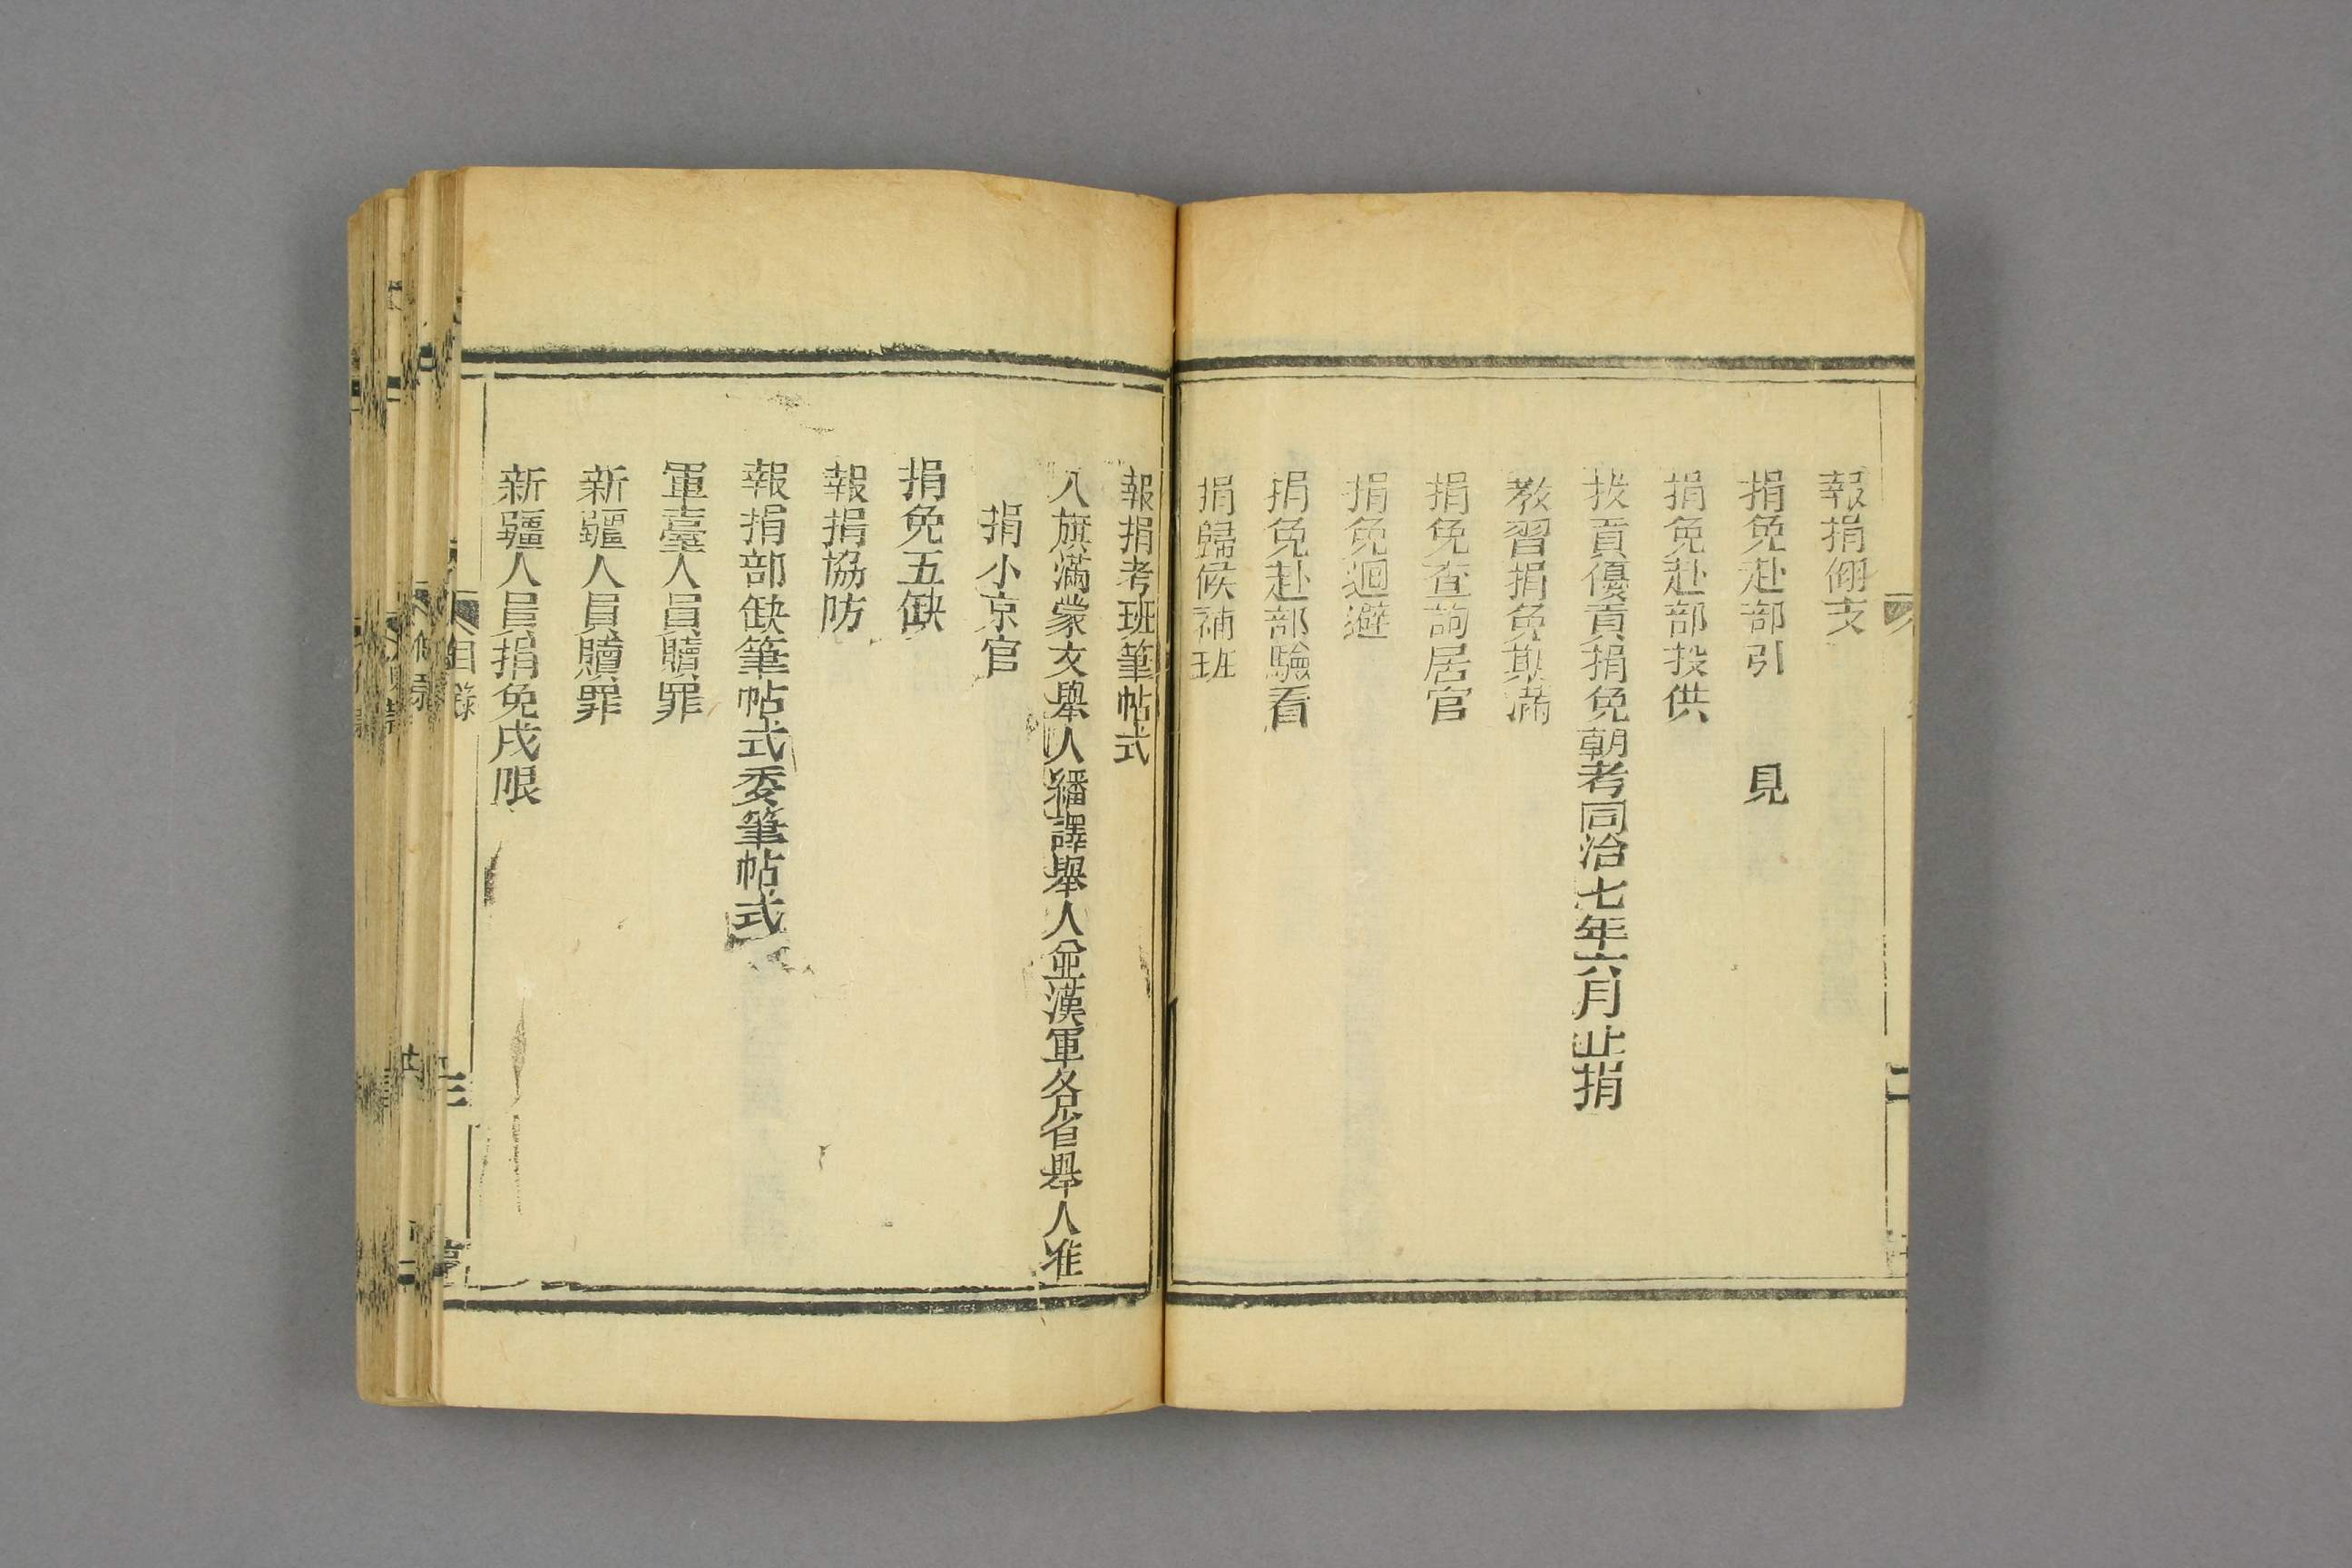 報捐翎支
捐免赴部引　見
捐免赴部投供
拔貢優貢捐免朝考同治七年六月止捐
教習捐免期滿
捐免查詢居官
捐免迴避
捐免赴部驗看
捐歸候補班
報捐考班筆帖式
八旗滿蒙文舉人繙譯舉人並漢軍各省舉人准
捐小京官
捐免五缺
報捐協防
報捐部缺筆帖式委筆帖式
軍臺人員贖罪
新疆人員贖罪
新疆人員捐免戌限
目錄
三